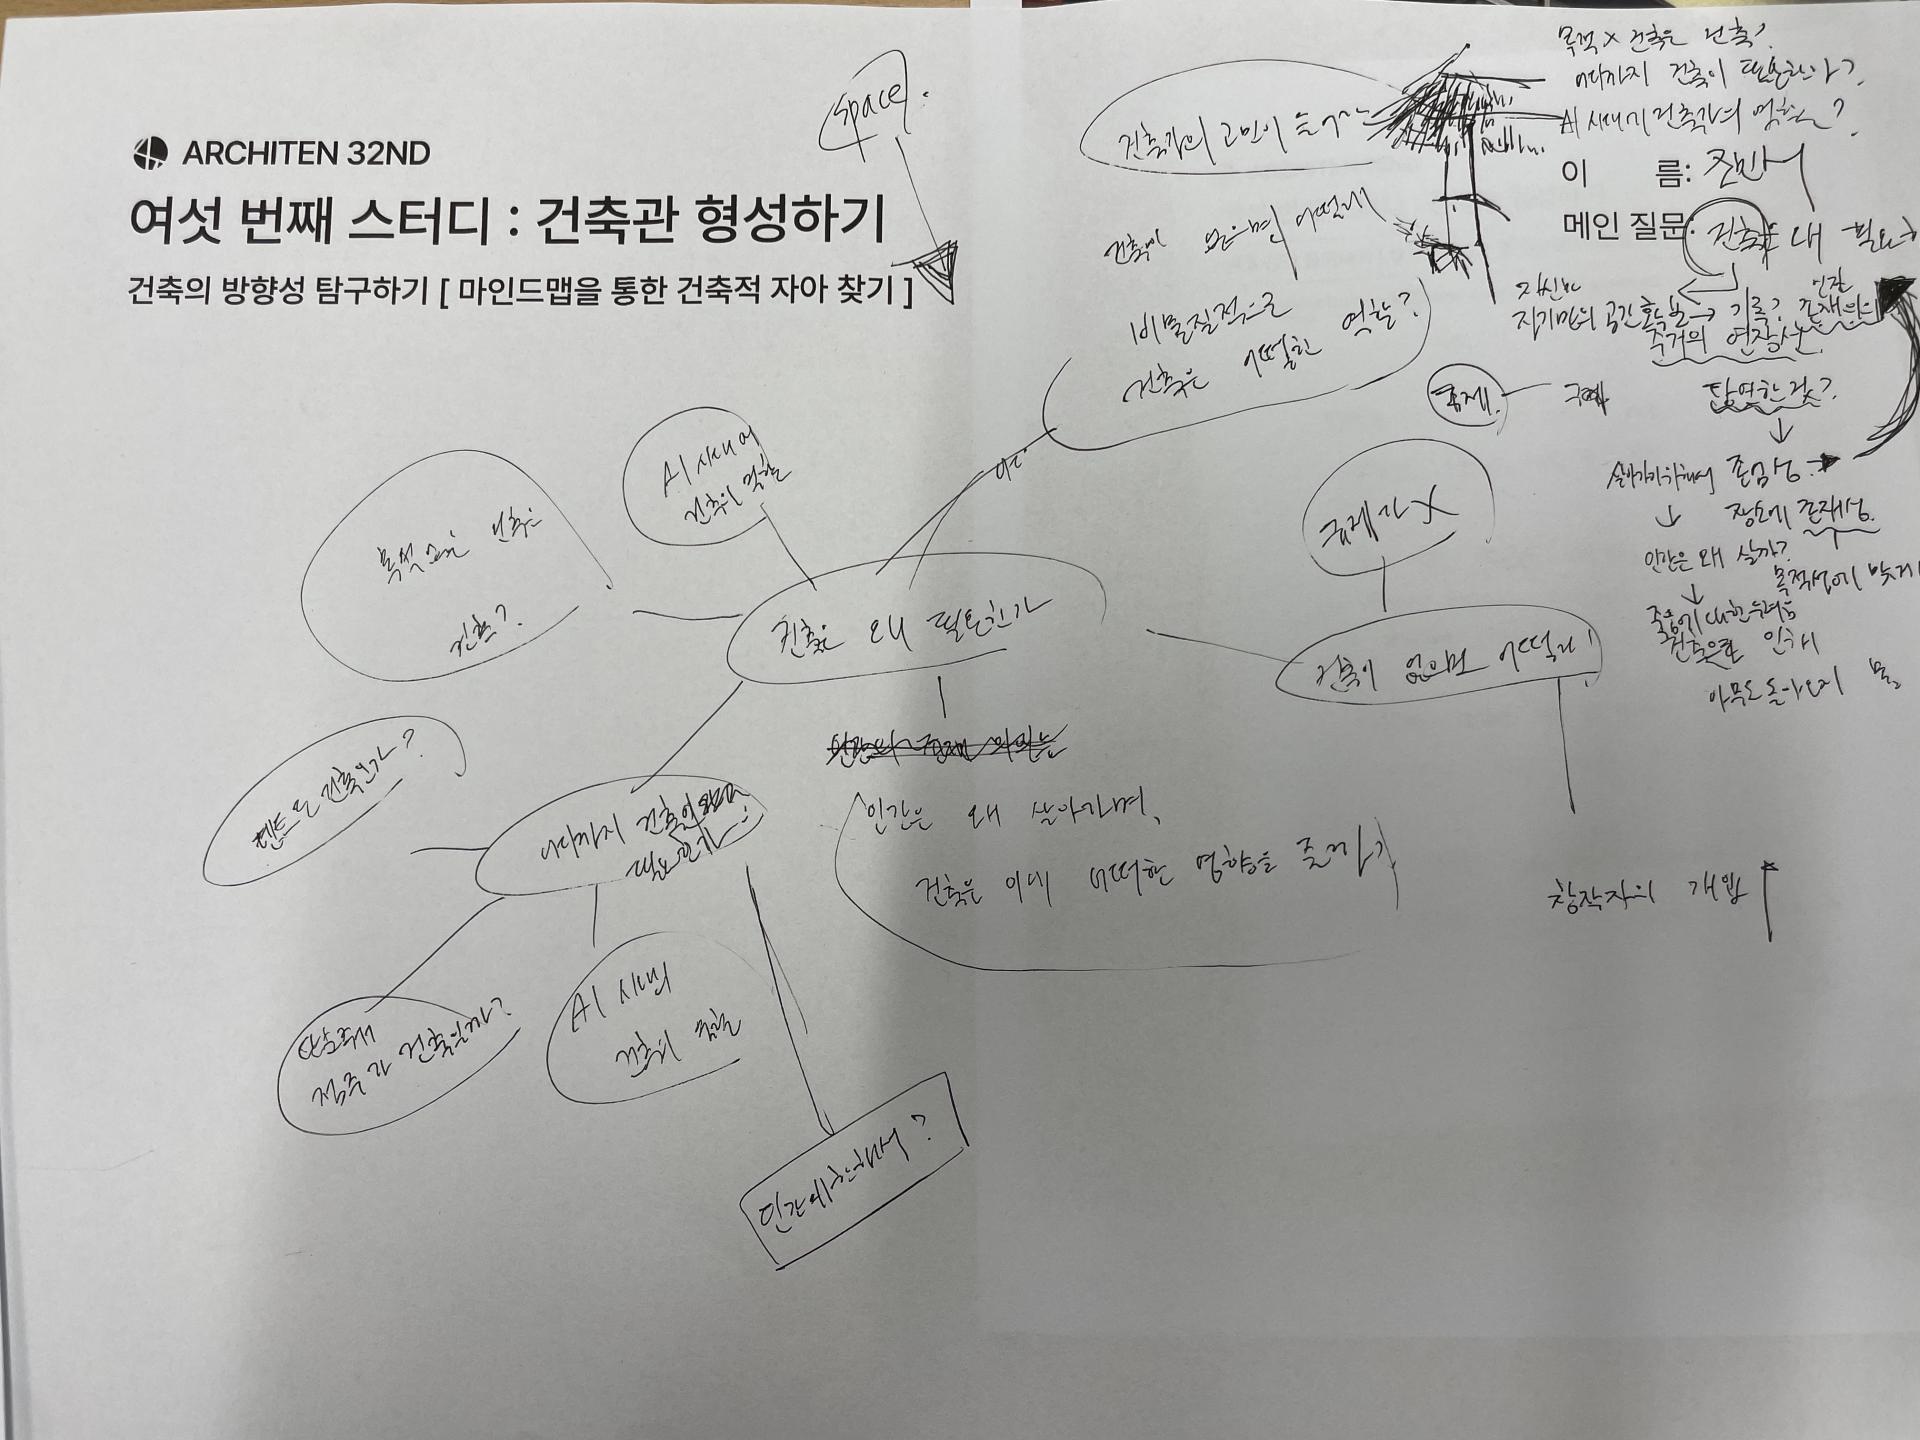 ARCHITEN 32ND
여섯 번째 스터디 : 건축관 형성하기
건축의 방향성 탐구하기 [ 마인드맵을 통한 건축적 자아 찾기 ]
space.
목적 X 건축은 건축?
어디까지 건축이 필요한가?
AI 시대기 건축가의 역할은?
이 름:
메인 질문: 건축은 왜
건축가의 고민이
건축이 없으면 어떨까
비물질적으로
건축은 어떠한 역할?
자신만
자기만의 공간 → 기록? 존재의
주거의 연장선
당연한 것?
존엄성
장소에 존재성
인간은 왜 살까?
목적성에 맞게
건축으로 인해
아무도
AI 시대에
건축의 역할
목적 없는 건축은
건축?
건축은 왜 필요한가
규제가 X
건축이 없으면 어떨까?
창작자의 개입
텐트는 건축인가?
어디까지 건축이
필요한가
인간은 왜 살아가며,
건축은 이에 어떠한 영향을 줄까?
AI 시대의
건축의 역할
정주가 건축일까?
인간에 한해서?